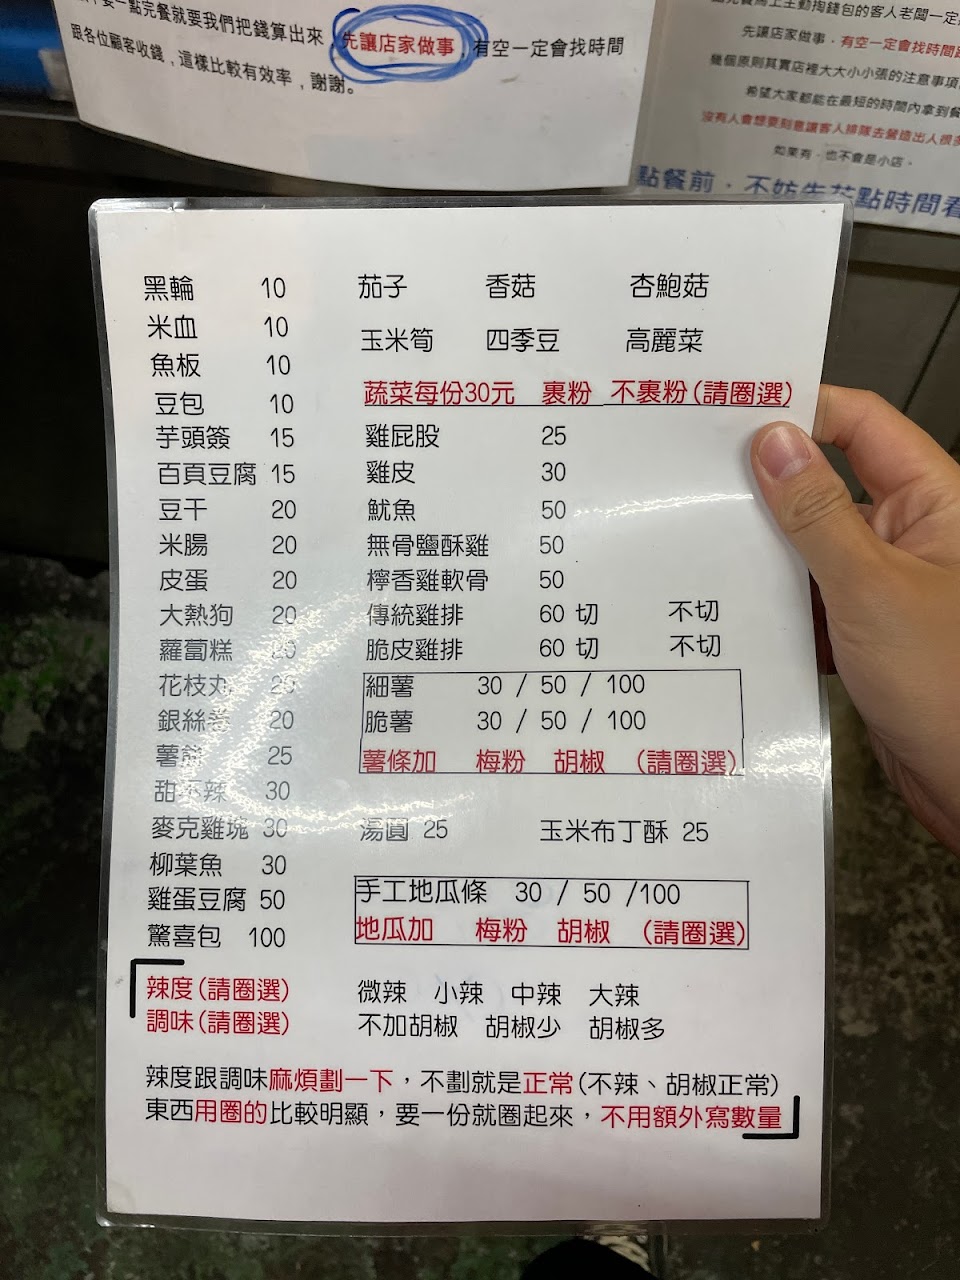 一點完餐就要我們把錢算出來，先讓店家做事，有空一定會找時間
跟各位顧客收錢，這樣比較有效率，謝謝。
主動掏錢包的客人老闆一定
先讓店家做事．有空一定會找時間
幾個原則其實店裡大大小小張的注意事項
希望大家都能在最短的時間內拿到餐
沒有人會想要刻意讓客人排隊去營造出人很多
如果有．也不會是小店。
點餐前．不妨先花點時間看
黑輪 10
米血 10
魚板 10
豆包 10
芋頭簽 15
百頁豆腐 15
豆干 20
米腸 20
皮蛋 20
大熱狗 20
蘿蔔糕 20
花枝丸 20
銀絲卷 20
薯餅 25
甜不辣 30
麥克雞塊 30
柳葉魚 30
雞蛋豆腐 50
驚喜包 100
茄子 香菇 杏鮑菇
玉米筍 四季豆 高麗菜
蔬菜每份30元 裹粉 不裹粉(請圈選)
雞屁股 25
雞皮 30
魷魚 50
無骨鹽酥雞 50
檸香雞軟骨 50
傳統雞排 60 切 不切
脆皮雞排 60 切 不切
細薯 30 / 50 / 100
脆薯 30 / 50 / 100
薯條加 梅粉 胡椒 (請圈選)
湯圓 25 玉米布丁酥 25
手工地瓜條 30 / 50 /100
地瓜加 梅粉 胡椒 (請圈選)
辣度(請圈選) 微辣 小辣 中辣 大辣
調味(請圈選) 不加胡椒 胡椒少 胡椒多
辣度跟調味麻煩劃一下，不劃就是正常(不辣、胡椒正常)
東西用圈的比較明顯，要一份就圈起來，不用額外寫數量